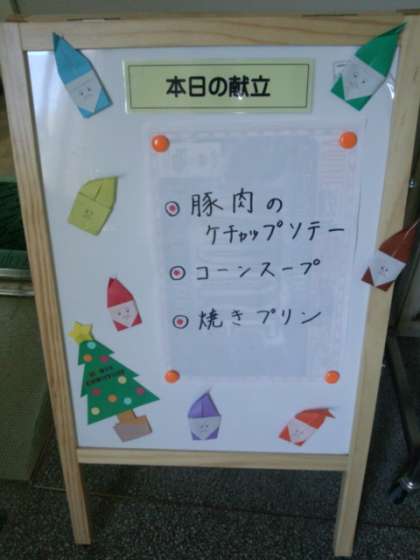 本日の献立
豚肉の
ケチャップソテー
コーンスープ
焼きプリン